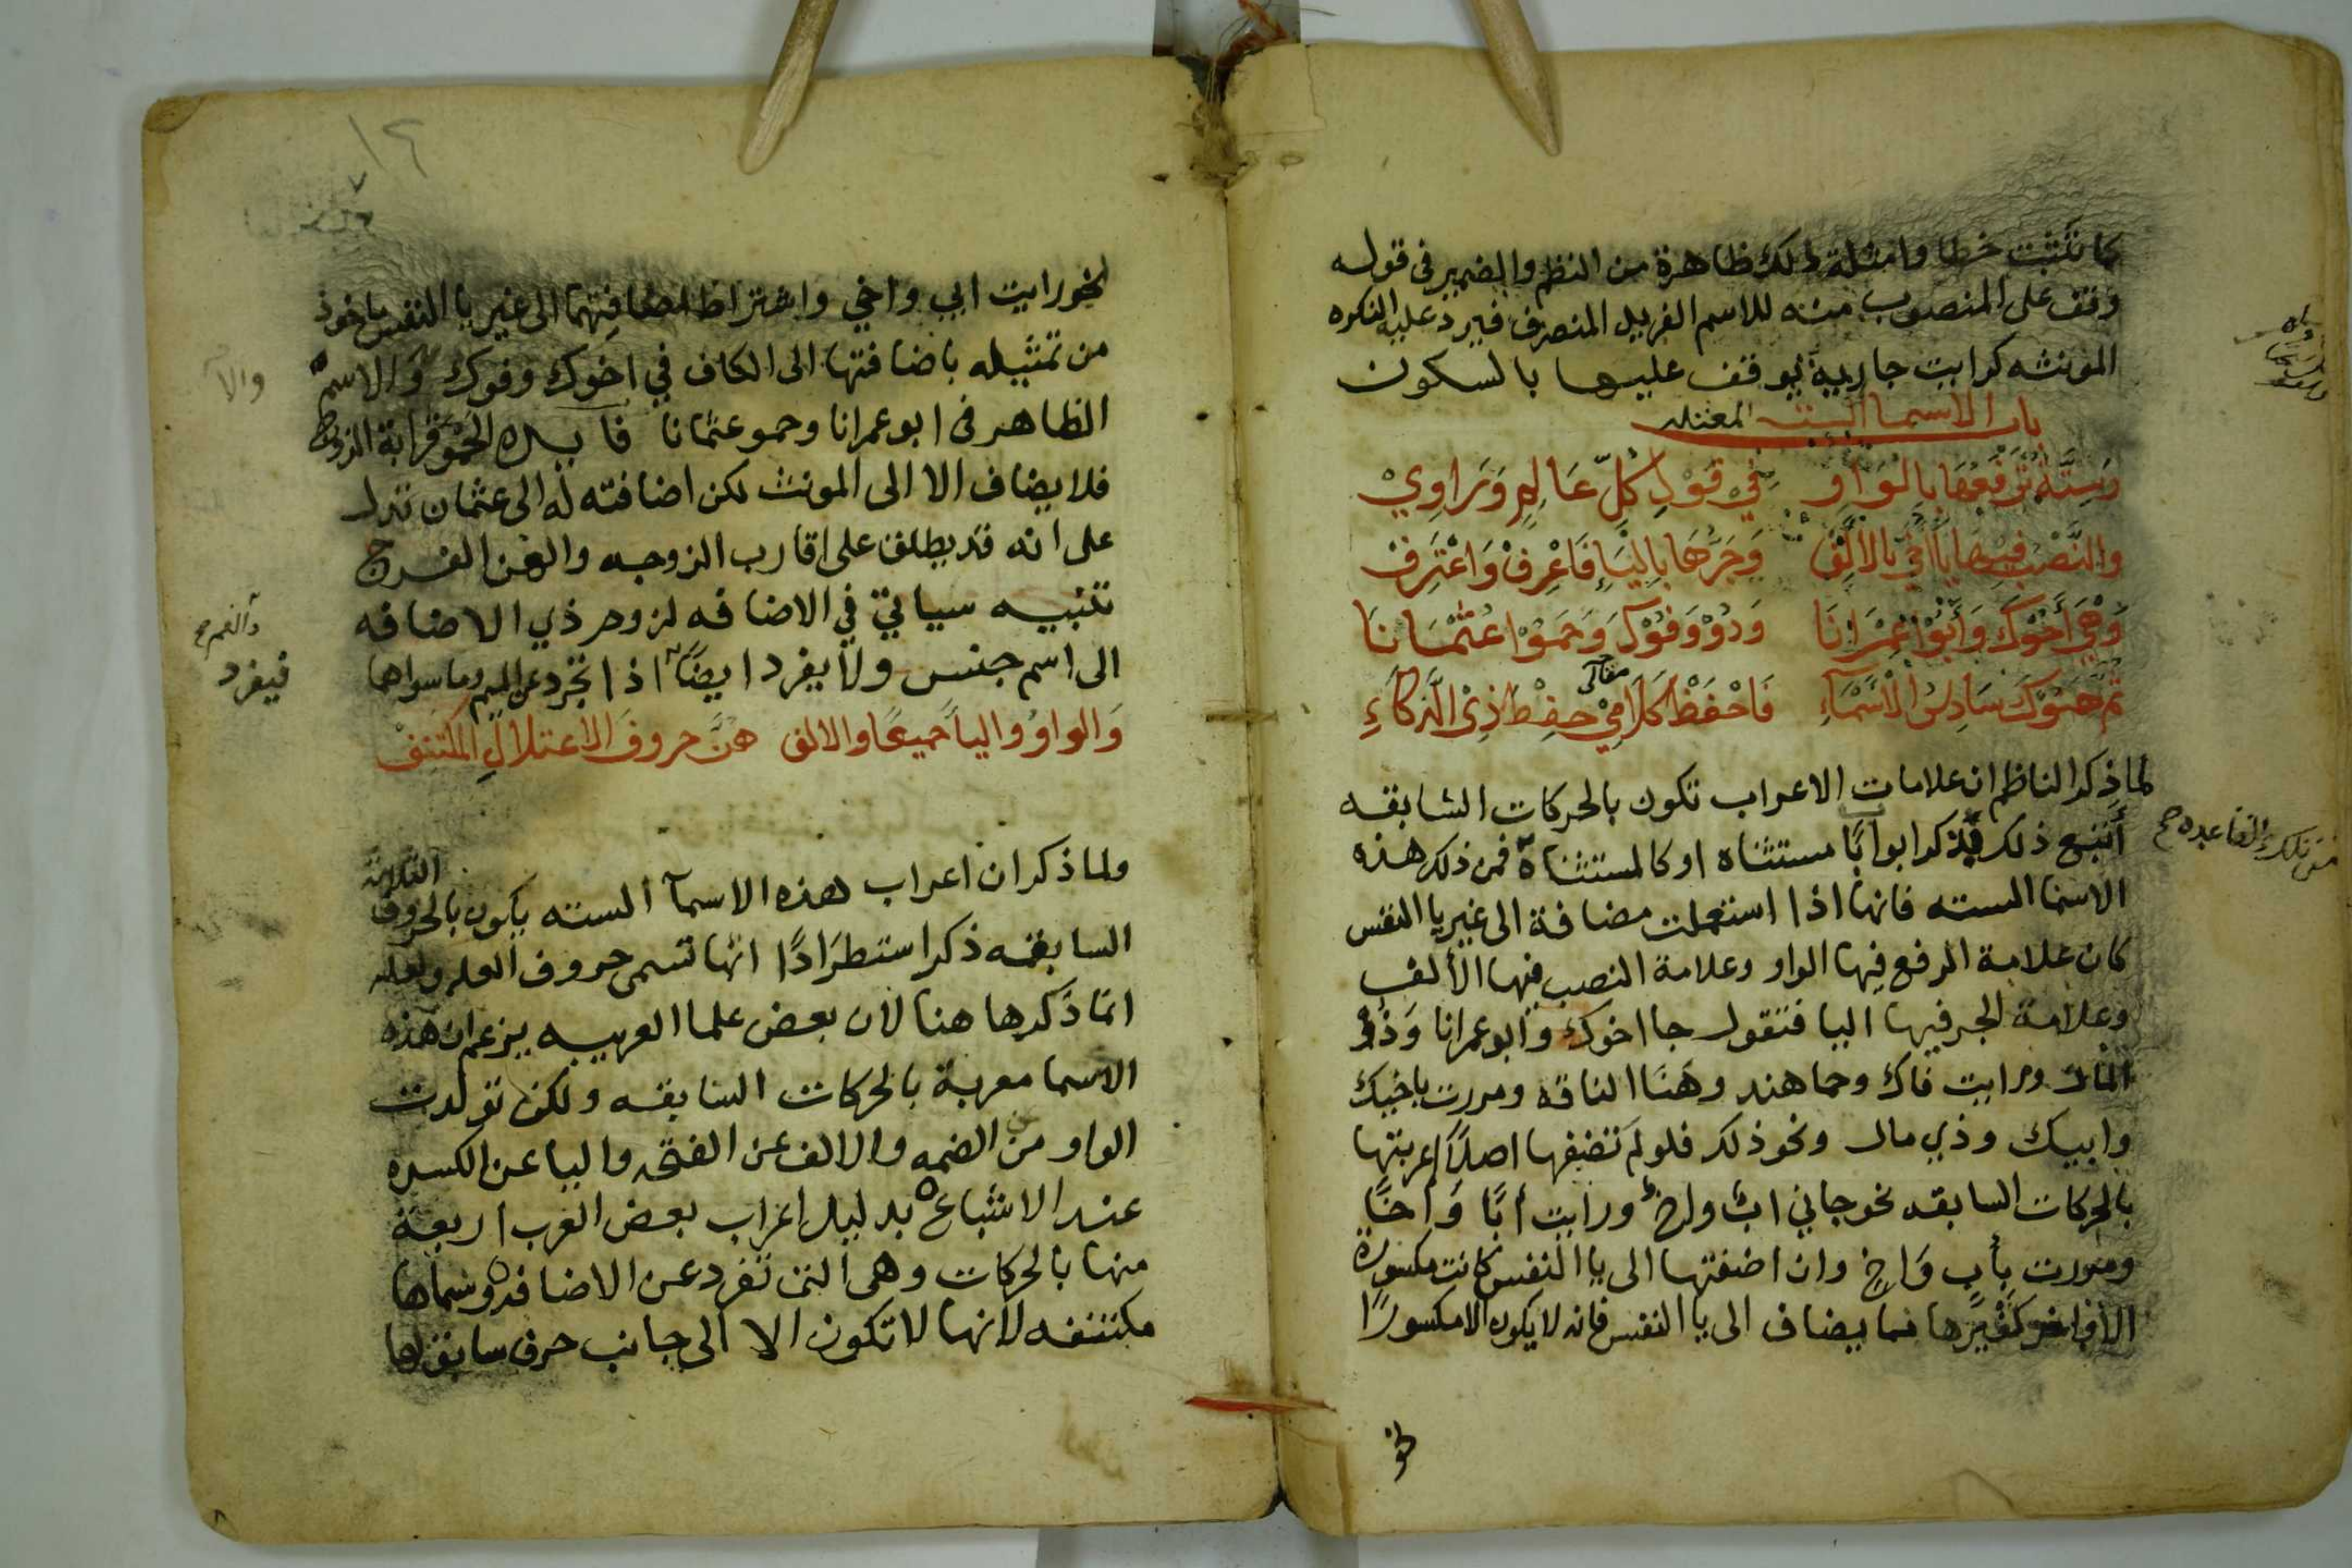 كما تثبت خطا وامثلة ذلك ظاهرة من النظم والضمير في قوله
وقف على المنصوب منه للاسم الفريد المنصرف فيرد عليه النكره
المونثه كرايت جارية يوقف عليها بالسكون
باب الاسما الستة المعتله
وَسِتَّةٌ تَرْفَعُهَا بِالْوَاوِ فِي قَوْلِ كُلِّ عَالِمٍ وَرَاوِيْ
والنَّصْبُ فِيهَا يَا أُخَيَّ بالأَلِفْ وَجَرُّهَا بِالْيَاءِ فَاعْرِفْ وَاعْتَرِفْ
وَهْيَ أَخُوْكَ وَأَبُوْ عِمْرَانَا وَذُوْ وَفُوْكَ وَحَمُوْا عُثْمَانَا
ثُمَّ هَنُوْكَ سَادِسُ الْأَسْمَآءِ فَاحْفَظْ كَلَامِيْ حِفْظَ ذِي الذَّكَاءِ
مقالي
لما ذكر الناظم ان علامات الاعراب تكون بالحركات السابقه
أتبع ذلك بذكر ابوابًا مستثناه او كالمستثناة فمن ذلك هذه
من تلك القاعده صح
الاسما السته فانها اذا استعملت مضافة الى غير يا النفس
كان علامة الرفع فيها الواو وعلامة النصب فيها الألف
وعلامة الجر فيها اليا فتقول جا اخوك وابو عمرانا وَذُوْ
المال ورايت فاك وحما هند وهَنَا الناقه ومررت باخيك
وابيك وذي مال ونحو ذلك فلو لم تضفها اصلاً اعربتها
بالحركات السابقه نحو جاني ابٌ واخٌ ورايت أبًا وَاخًا
ومررت بِأبٍ وَاخٍ وان اضفتها الى يا النفس كانت مكسورة
الاواخر كغيرها مما يضاف الى يا النفس فانه لا يكون الا مكسورًا
نحو
نحو رايت ابي واخي واشتراط اضافتها الى غير يا النفس ماخوذ
من تمثيله باضافتها الى الكاف في اخوك وفوك وَالاسم
والا
الظاهر في ابو عمرانا وحمو عثمانا فايده الحَمْو قرابة الزوج
فلا يضاف الا الى المونث لكن اضافته له الى عثمان تدل
على انه قد يطلق على اقارب الزوجه والهن الفرج
تنبيه سياتي في الاضافه لزوم ذي الاضافه
الى اسم جنس ولا يفرد ايضًا اذا تجرد عن الميم وما سواها
فيفرد
وَالواوُ واليأ جميعًا والالف هنَّ حروفُ الاعتلالِ المكتنف
ولما ذكر ان اعراب هذه الاسمآ السته يكون بالحروف
الثلاثة
السابقه ذكر استطرَادًا انها تسمى حروف العله ولعله
انما ذكرها هنا لان بعض علما العربيه يزعم ان هذه
الاسما معربة بالحركات السابقه ولكن تولدت
الواو من الضمه والالف عن الفتحه واليا عن الكسره
عند الاشباع بدليل اعراب بعض العرب اربعة
منها بالحركات وهي التي تفرد عن الاضافه وسماها
مكتنفه لانها لا تكون الا الى جانب حرف سابق لها